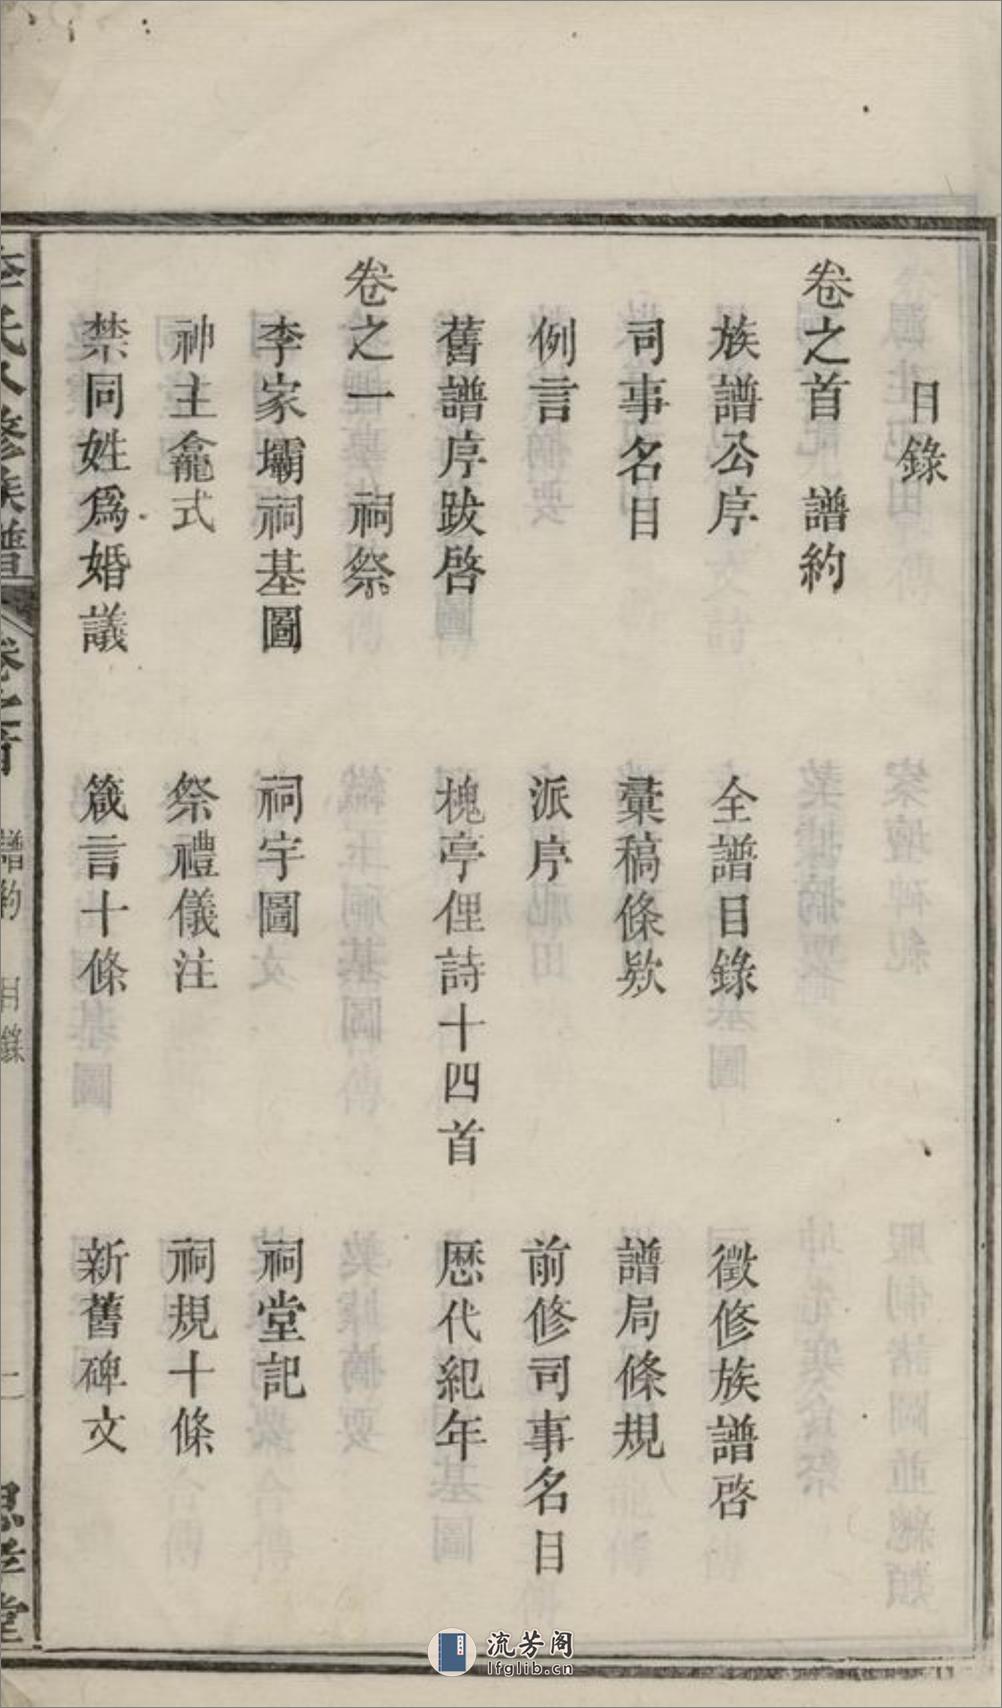 目錄
卷之首 譜約
族譜公序 全譜目錄 徵修族譜啓
司事名目 彙稿條欵 譜局條規
例言 派序 前修司事名目
舊譜序跋啓 槐亭俚詩十四首 歷代紀年
卷之一 祠祭
李家壩祠基圖 祠宇圖 祠堂記
神主龕式 祭禮儀注 祠規十條
禁同姓爲婚議 箴言十條 新舊碑文
李氏八修族譜 卷之首 譜約 目錄 一 思孝堂
流芳阁
lfglib.cn